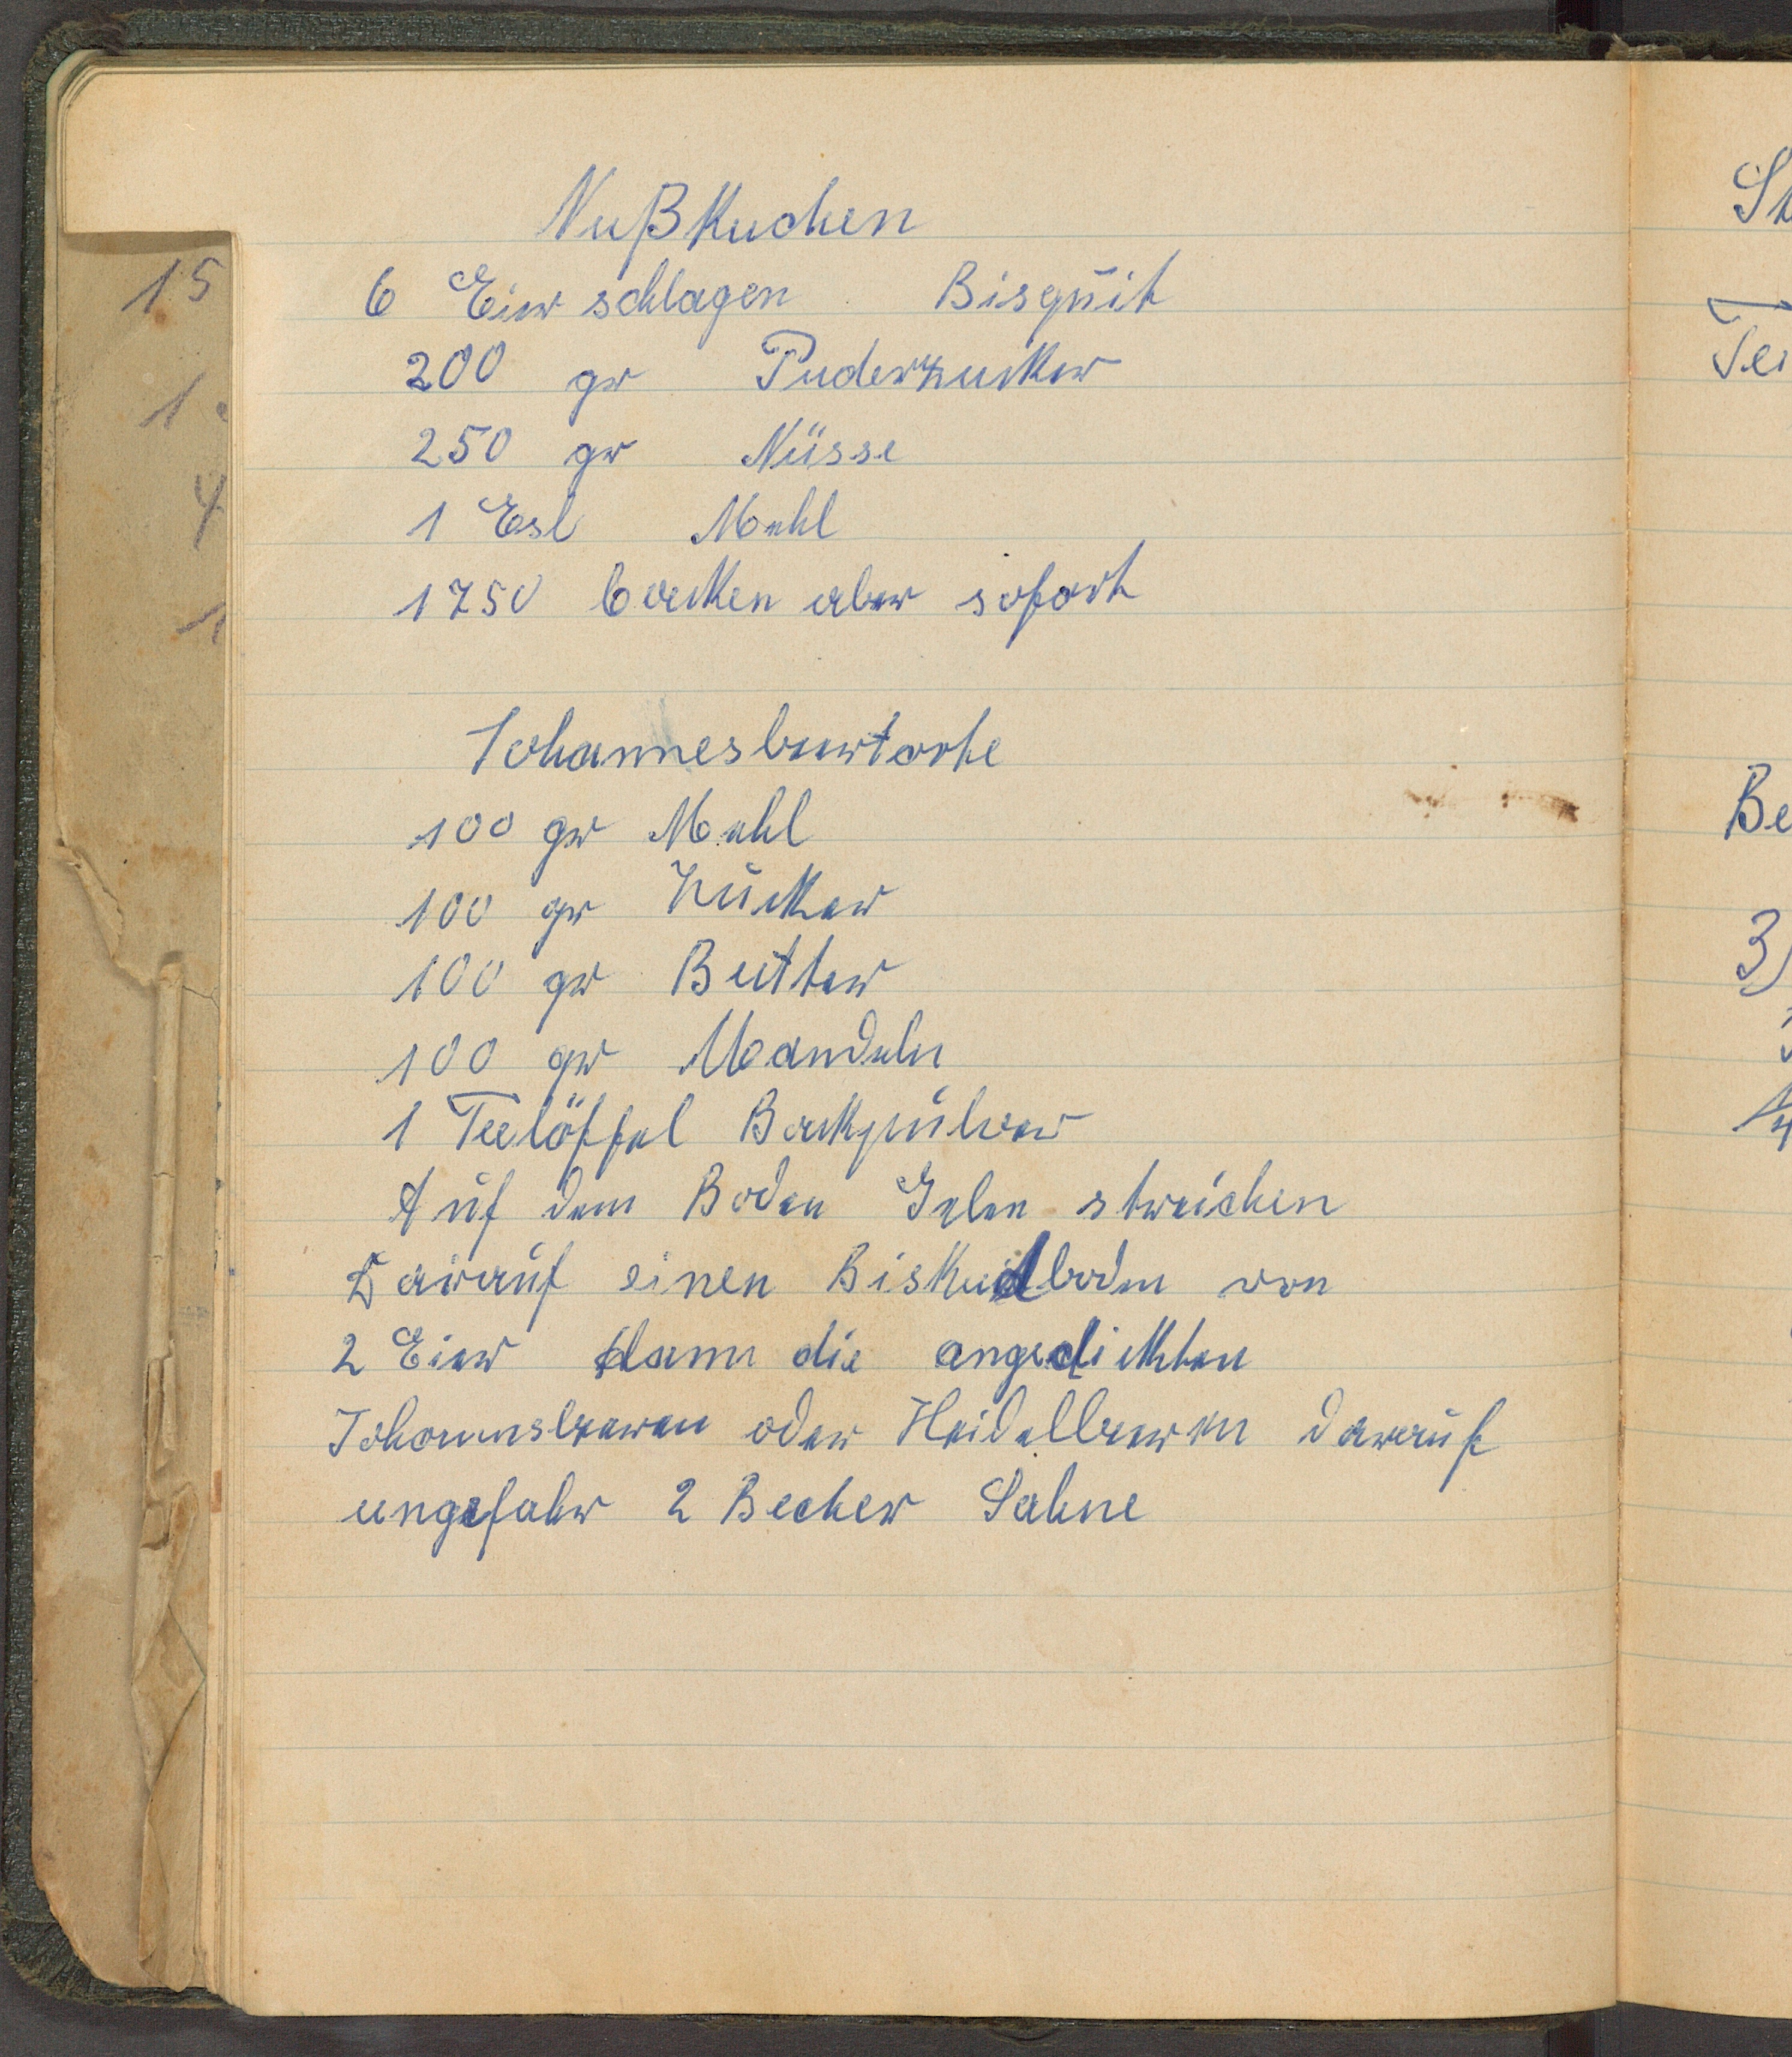 Nußkuchen
6 Eier schlagen Bisquit
200 gr Puderzucker
250 gr Nüsse
1 Esl Mehl
1750 backen aber sofort
Johannesbeertorte
100 gr Mehl
100 gr Zucker
100 gr Butter
100 gr Mandeln
1 Teelöffel Backpulver
Auf dem Boden Gelee streichen
Darauf einen Biskuidboden von
2 Eier dann die angedickten
Johannsbeeren oder Heidelbeeren darauf
ungefahr 2 Becher Sahne
15
1
4
1
St
Tei
Be
3)